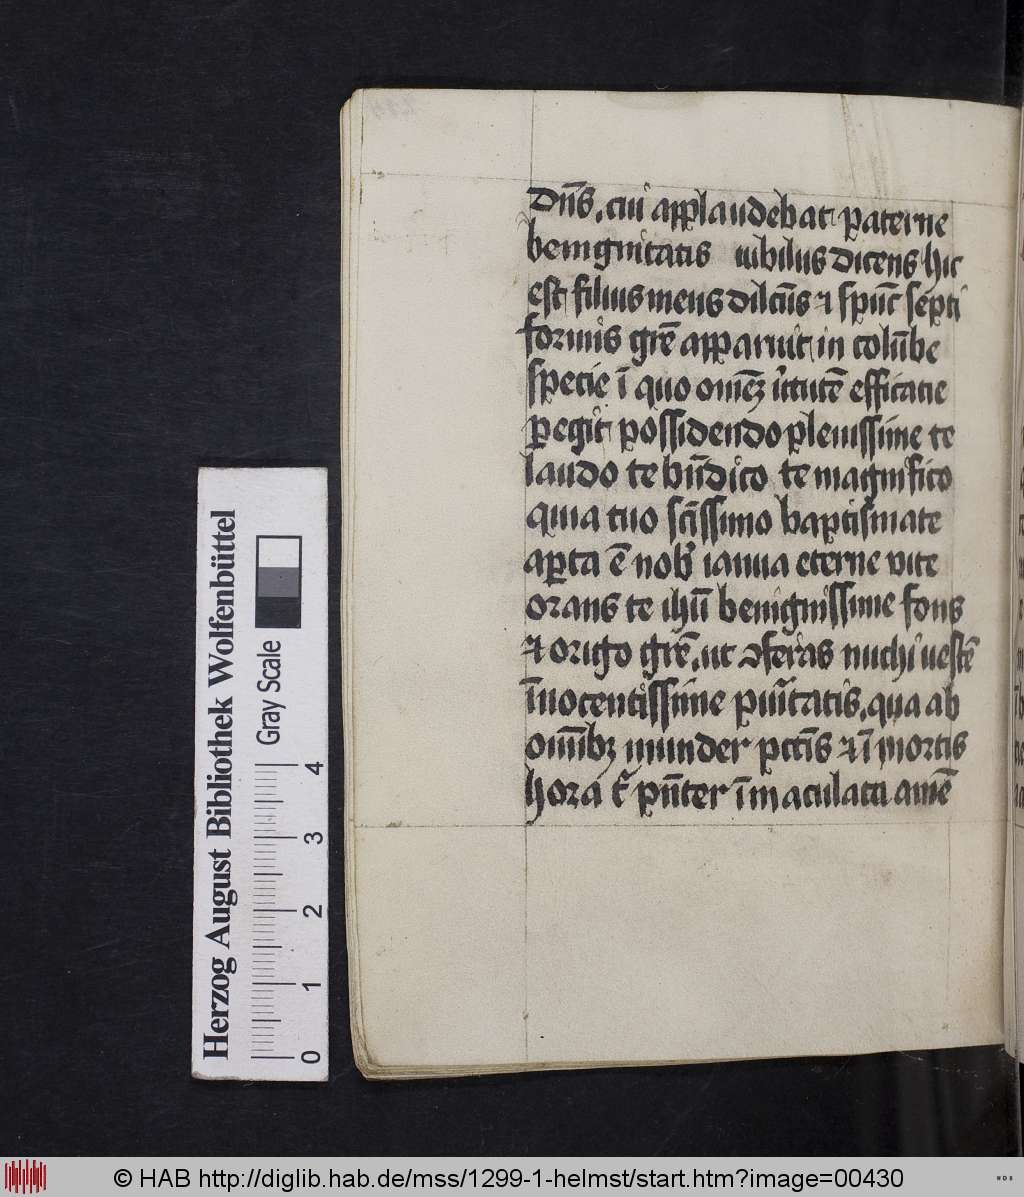 dn̄s, cui applaudebat paterne
benignitatis iubilus dicens hic
est filius meus dilcūs ⁊ spūc septi
formis grē apparuit in colūbe
specie ī quo omēꝫ v̓tutē efficatie
ꝑegit possidendo plenissime te
laudo te bn̄dico te magnifico
quia tuo scīssimo baptismate
aꝑta ē nob̓ ianua eterne vite
orans te ihū benignissime fons
⁊ origo grē, ut ꝯferas michi uestē
īnocentissime puītatis, qua ab
omībꝫ munder pctīs ⁊ ī mortis
hora t̓ pn̄ter īmaculata amē
Herzog August Bibliothek Wolfenbüttel
Gray Scale
0 1 2 3 4
© HAB http://diglib.hab.de/mss/1299-1-helmst/start.htm?image=00430